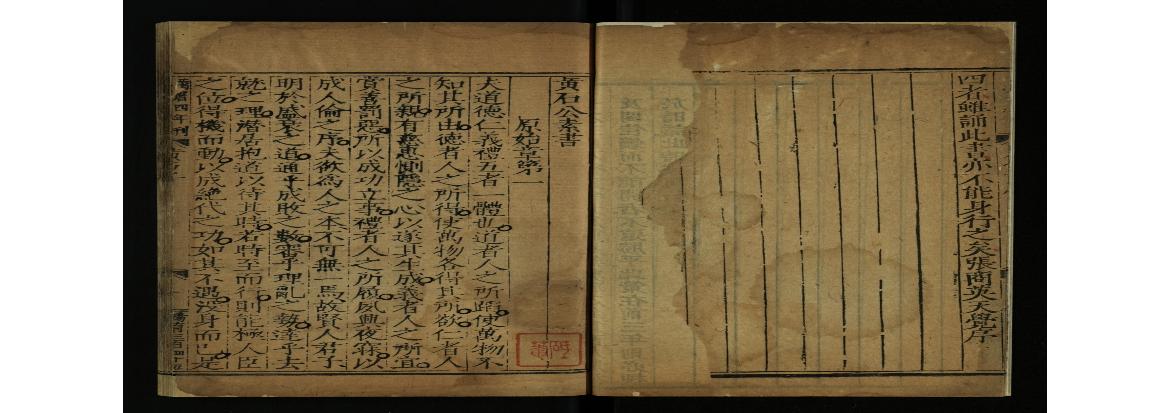 四老雖誦此書亦不能身行之矣張商英天覺序
黃石公素書
原始章第一
夫道德仁義禮五者一體也道者人之所蹈使萬物不
知其所由德者人之所得使萬物各得其所欲仁者人
之所親有慈惠惻隱之心以遂其生成義者人之所宜
賞善罰惡所以成功立事禮者人之所履夙興夜寐以
成人倫之序夫欲為人之本不可無一焉故賢人君子
明於盛衰之道通乎成敗之數審乎理亂之勢達乎去
就之理潛居抱道以待其時若時至而行則能極人臣
之位得機而動以成絕代之功如其不遇沒身而已是
萬曆四年刊